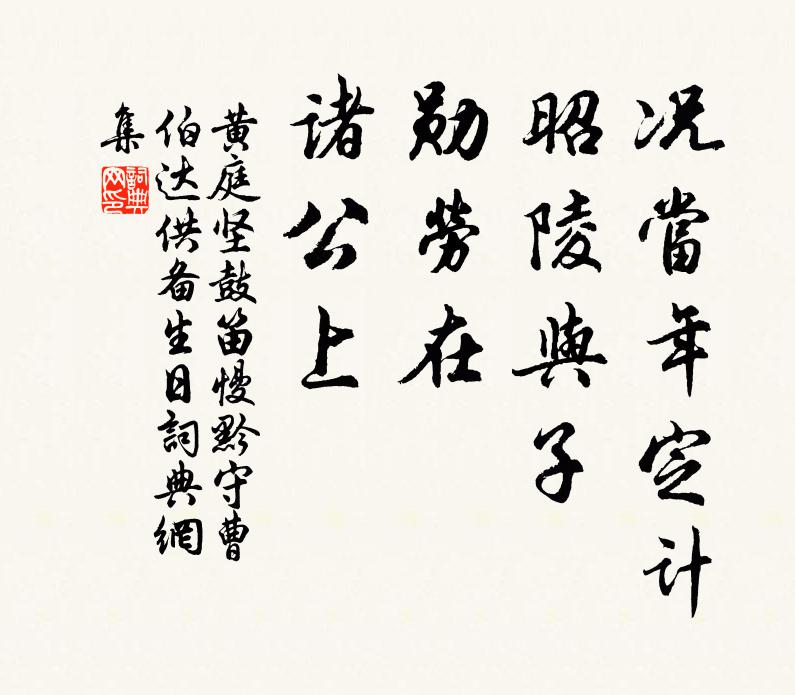 况當年定计
昭陵與子
勋劳在
诸公上
黄庭坚鼓笛慢黔守曹
伯达供备生日詞典網
集
詞典网印